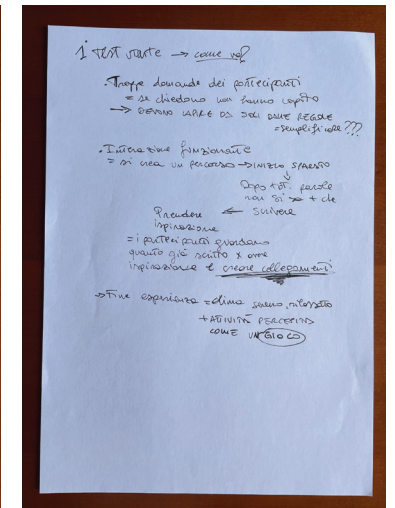 1 TEST carte → come va?
• Troppe domande dei partecipanti
= se chiedono non hanno capito
→ DEVONO CAPIRE DA SOLI DALLE REGOLE
= semplificare???
• Interazione funzionante
= si crea un percorso → INIZIO SPARSO
↓
Dopo tot. parole
non si sa + che
Prendere ← scrivere
Ispirazione
= i partecipanti guardano
quanto già scritto x avere
inspirazione e creare collegamenti
→ Fine esperienza = clima sereno, rilassato
+ ATTIVITÀ PERCEPITA
COME UN GIOCO